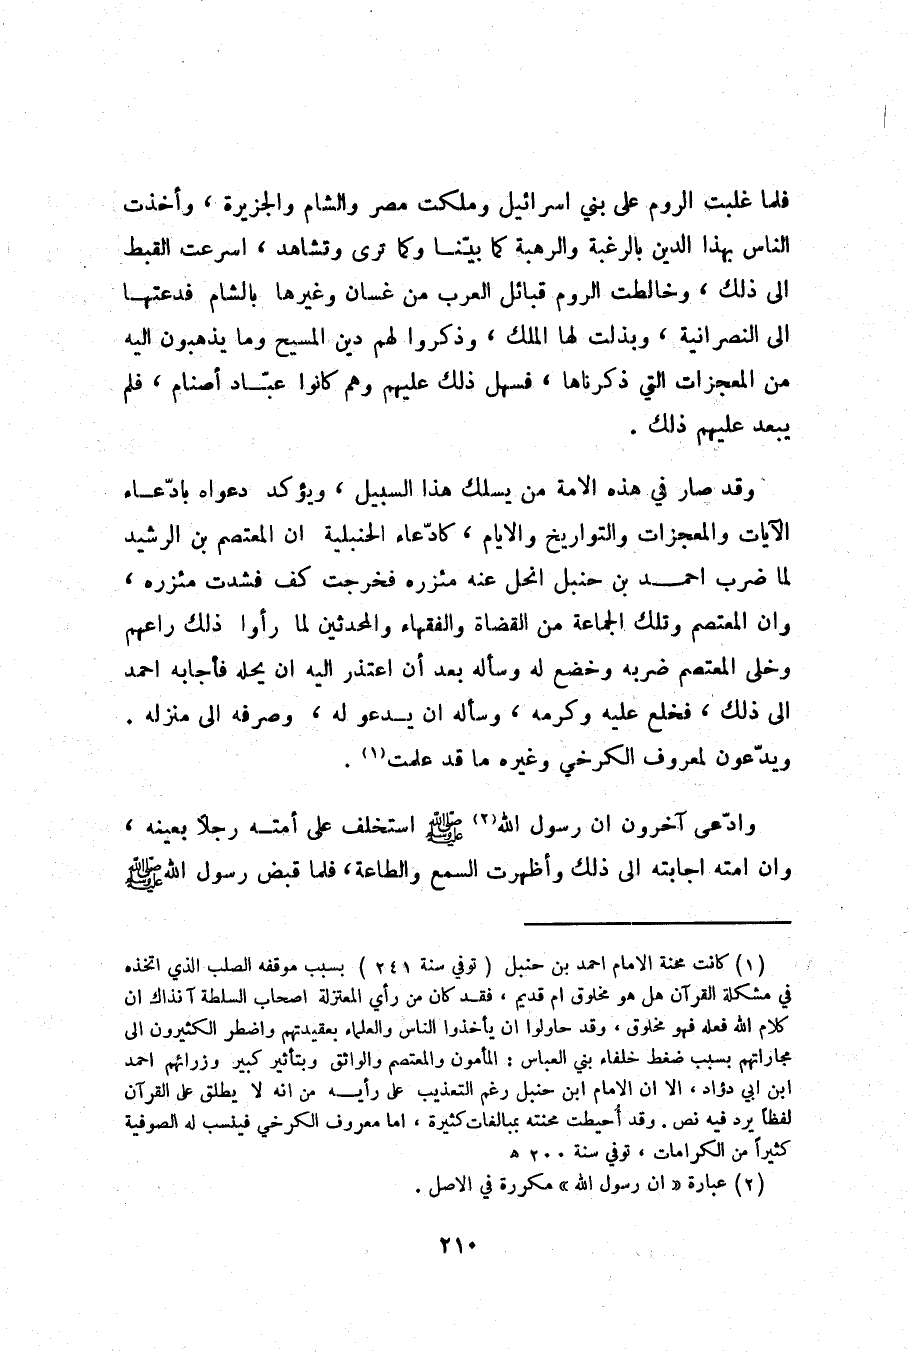 فلما غلبت الروم على بني اسرائيل وملكت مصر والشام والجزيرة ، وأخذت
الناس بهذا الدين بالرغبة والرهبة كما بيّنا وكما ترى وتشاهد ، اسرعت القبط
الى ذلك ، وخالطت الروم قبائل العرب من غسان وغيرها بالشام فدعتها
الى النصرانية ، وبذلت لها الملك ، وذكروا لهم دين المسيح وما يذهبون اليه
من المعجزات التي ذكرناها ، فسهل ذلك عليهم وهم كانوا عبّاد أصنام ، فلم
يبعد عليهم ذلك .
وقد صار في هذه الامة من يسلك هذا السبيل ، ويؤكد دعواه بادّعاء
الآيات والمعجزات والتواريخ والايام ، كادّعاء الحنبلية ان المعتصم بن الرشيد
لما ضرب احمد بن حنبل انحل عنه مئزره فخرجت كف فشدت مئزره ،
وان المعتصم وتلك الجماعة من القضاة والفقهاء والمحدثين لما رأوا ذلك راعهم
وخلى المعتصم ضربه وخضع له وسأله بعد أن اعتذر اليه ان يحله فأجابه احمد
الى ذلك ، فخلع عليه وكرمه ، وسأله ان يدعو له ، وصرفه الى منزله .
ويدّعون لمعروف الكرخي وغيره ما قد علمت (١) .
وادّعى آخرون ان رسول الله (٢) ﷺ استخلف على أمته رجلاً بعينه ،
وان امته اجابته الى ذلك وأظهرت السمع والطاعة ، فلما قبض رسول الله ﷺ
(١) كانت محنة الامام احمد بن حنبل ( توفي سنة ٢٤١ ) بسبب موقفه الصلب الذي اتخذه
في مشكلة القرآن هل هو مخلوق ام قديم ، فقد كان من رأي المعتزلة اصحاب السلطة آنذاك ان
كلام الله فعله فهو مخلوق ، وقد حاولوا ان يأخذوا الناس والعلماء بعقيدتهم واضطر الكثيرون الى
مجاراتهم بسبب ضغط خلفاء بني العباس : المأمون والمعتصم والواثق وبتأثير كبير وزرائهم احمد
ابن ابي دؤاد ، الا ان الامام ابن حنبل رغم التعذيب على رأيه من انه لا يطلق على القرآن
لفظاً يرد فيه نص . وقد أحيطت محنته بمبالغات كثيرة ، اما معروف الكرخي فينسب له الصوفية
كثيراً من الكرامات ، توفي سنة ٢٠٠ ه
(٢) عبارة « ان رسول الله » مكررة في الاصل .
٢١٠